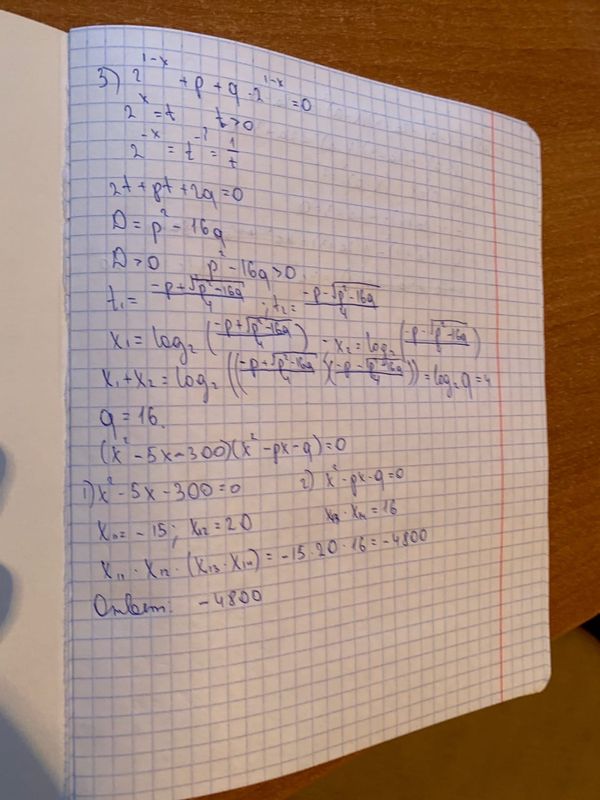 3) 2^{1-x} + p + q · 2^{1-x} = 0
2^x = t   t > 0
2^{-x} = t^{-1} = 1/t
2t + pt + 2q = 0
D = p^2 - 16q
D > 0   p^2 - 16q > 0
t_1 = (-p + √(p^2 - 16q))/4 ; t_2 = (-p - √(p^2 - 16q))/4
x_1 = log_2 ((-p + √(p^2 - 16q))/4) - x_2 = log_2 ((-p - √(p^2 - 16q))/4)
x_1 + x_2 = log_2 (((-p + √(p^2 - 16q))/4)((-p - √(p^2 - 16q))/4)) = log_2 q = 4
q = 16.
(x^2 - 5x - 300)(x^2 - px - q) = 0
1) x^2 - 5x - 300 = 0   2) x^2 - px - q = 0
x_{11} = -15; x_{12} = 20   x_{13} · x_{14} = 16
x_{11} · x_{12} · (x_{13} · x_{14}) = -15 · 20 · 16 = -4800
Ответ: -4800